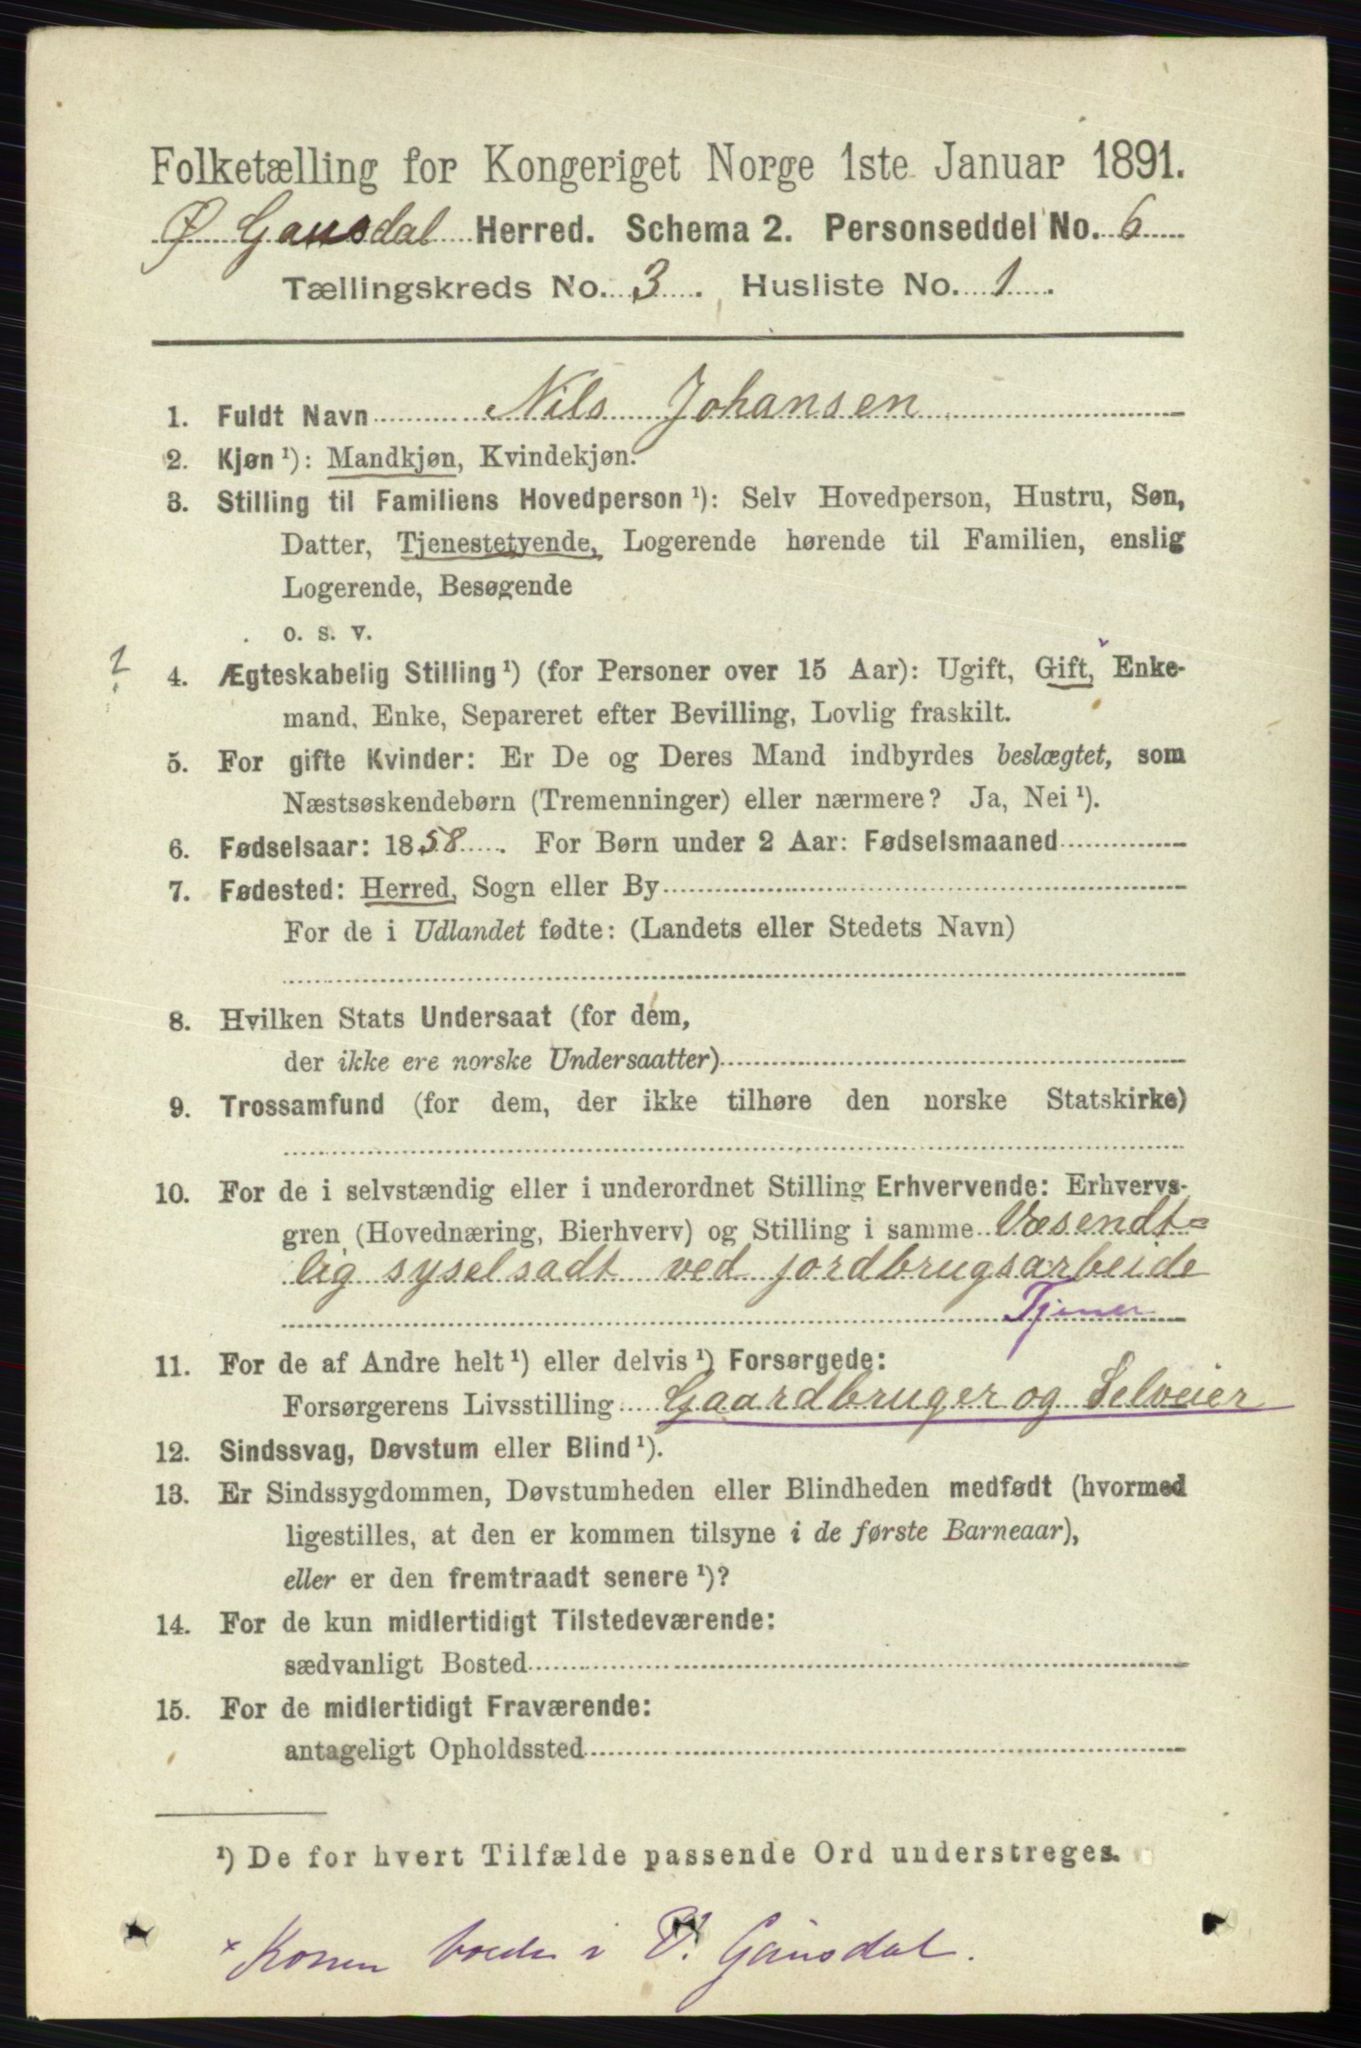 Folketælling for Kongeriget Norge 1ste Januar 1891.
Ø Gausdal Herred. Schema 2. Personseddel No. 6
Tællingskreds No. 3. Husliste No. 1.
1. Fuldt Navn Nils Johansen
2. Kjøn ¹): Mandkjøn, Kvindekjøn.
3. Stilling til Familiens Hovedperson ¹): Selv Hovedperson, Hustru, Søn,
Datter, Tjenestetyende, Logerende hørende til Familien, enslig
Logerende, Besøgende
o. s. v.
?
4. Ægteskabelig Stilling ¹) (for Personer over 15 Aar): Ugift, Gift, Enke-
mand, Enke, Separeret efter Bevilling, Lovlig fraskilt.
5. For gifte Kvinder: Er De og Deres Mand indbyrdes beslægtet, som
Næstsøskendebørn (Tremenninger) eller nærmere? Ja, Nei ¹).
6. Fødselsaar: 1858. For Børn under 2 Aar: Fødselsmaaned
7. Fødested: Herred, Sogn eller By
For de i Udlandet fødte: (Landets eller Stedets Navn)
8. Hvilken Stats Undersaat (for dem,
der ikke ere norske Undersaatter)
9. Trossamfund (for dem, der ikke tilhøre den norske Statskirke)
10. For de i selvstændig eller i underordnet Stilling Erhvervende: Erhvervs-
gren (Hovednæring, Bierhverv) og Stilling i samme Væsendt=
lig syselsadt ved jordbrugsarbeide
Tjener
11. For de af Andre helt ¹) eller delvis ¹) Forsørgede:
Forsørgerens Livsstilling Gaardbruger og Selveier
12. Sindssvag, Døvstum eller Blind ¹).
13. Er Sindssygdommen, Døvstumheden eller Blindheden medfødt (hvormed
ligestilles, at den er kommen tilsyne i de første Barneaar),
eller er den fremtraadt senere ¹)?
14. For de kun midlertidigt Tilstedeværende:
sædvanligt Bosted
15. For de midlertidigt Fraværende:
antageligt Opholdssted
¹) De for hvert Tilfælde passende Ord understreges.
× Konen boede i V. Gausdal.